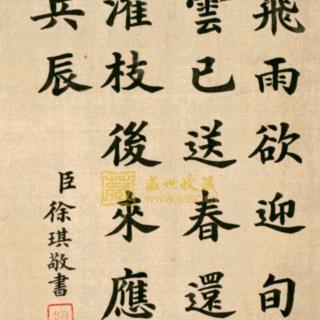 飛雨欲迎旬
雲已送春還
濯枝後來應
兵辰
臣徐琪敬書
盛世收藏